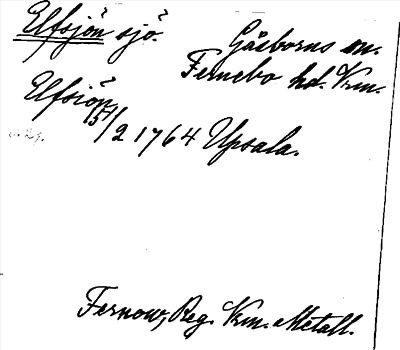 Elfsjön sjö.
Gåsborns sn.
Fernebo hd. Vrm.
Elfsiön
15/2 1764 Upsala.
Fernow, Reg. Vrm. Metall.